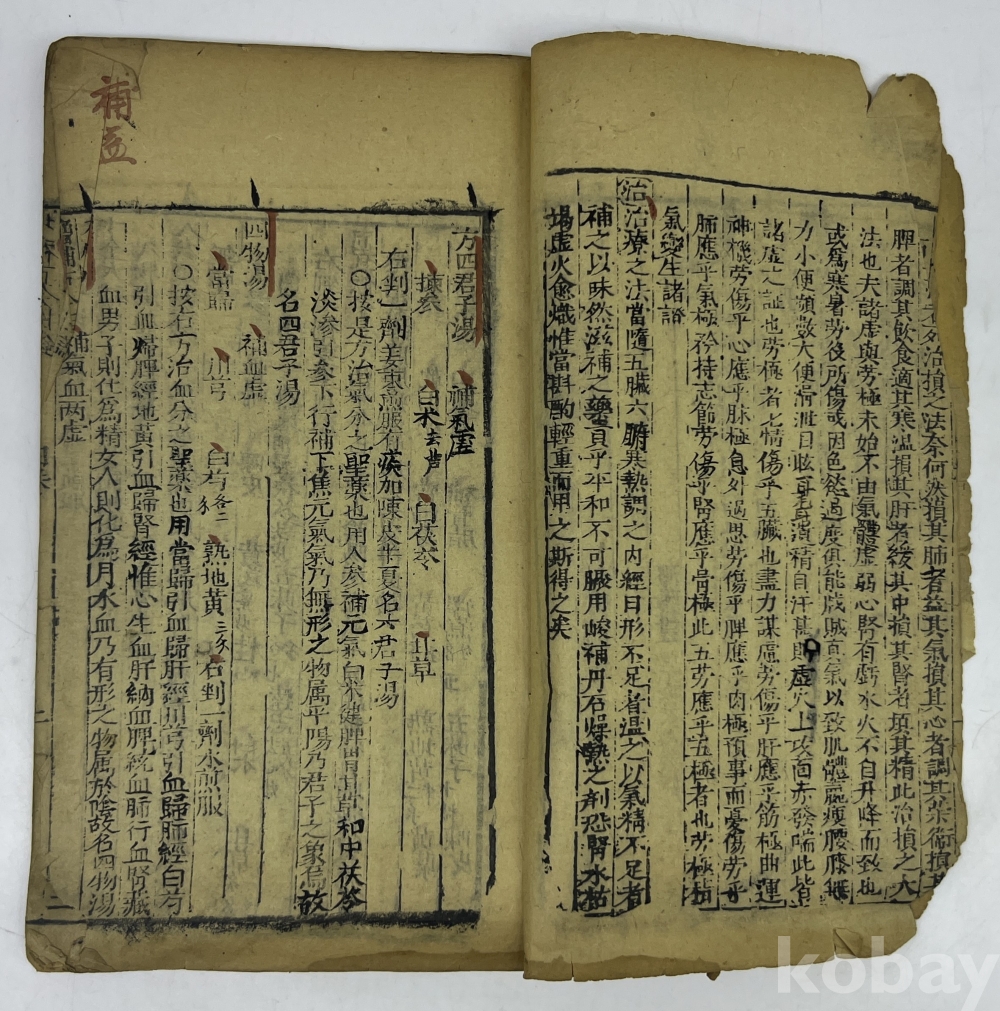 脾者調其飲食適其寒温損其肝者緩其中損其腎者填其精此治損之大
法也夫諸虛與勞極未始不由氣體虛弱心腎有虧水火不自升降而致也
或爲寒暑勞役所傷或因色慾過度俱能戕賊真氣以致肌體羸瘦腰膝無
力小便頻數大便滑泄目眩耳聾遺精自汗甚則虛火上攻面赤發喘此皆
諸虛之証也勞極者七情傷乎五臟也盡力謀慮勞傷乎肝應乎筋極曲運
神機勞傷乎心應乎脉極意外過思勞傷乎脾應乎肉極預事而憂傷勞乎
肺應乎氣極矜持志節勞傷乎腎應乎骨極此五勞應乎五極者也勞極
氣變生諸證
治治療之法當隨五臟六腑寒熱調之内經曰形不足者温之以氣精不足者
補之以味然滋補之藥貴乎平和不可驟用峻補丹石燥熱之劑恐腎水枯
場虛火愈熾惟當斟酌輕重而用之斯得之矣
補益
方四君子湯 補氣虛
揀參 白术去芦 白茯苓 甘草
右剉一劑姜棗煎服有痰加陳皮半夏名六君子湯
○按是方治氣分之聖藥也用人參補元氣白术健脾胃甘草和中茯苓
淡滲引參下行補下焦元氣氣乃無形之物属乎陽乃君子之象焉故
名四君子湯
四物湯 補血虛
當歸 川芎 白芍各二 熟地黄三 右剉一劑水煎服
○按右方治血分之聖藥也用當歸引血歸肝經川芎引血歸肺經白芍
引血歸脾經地黄引血歸腎經惟心生血肝納血脾統血肺行血腎藏
血男子則化爲精女人則化爲月水血乃有形之物属於陰故名四物湯
補氣血两虛
kobay